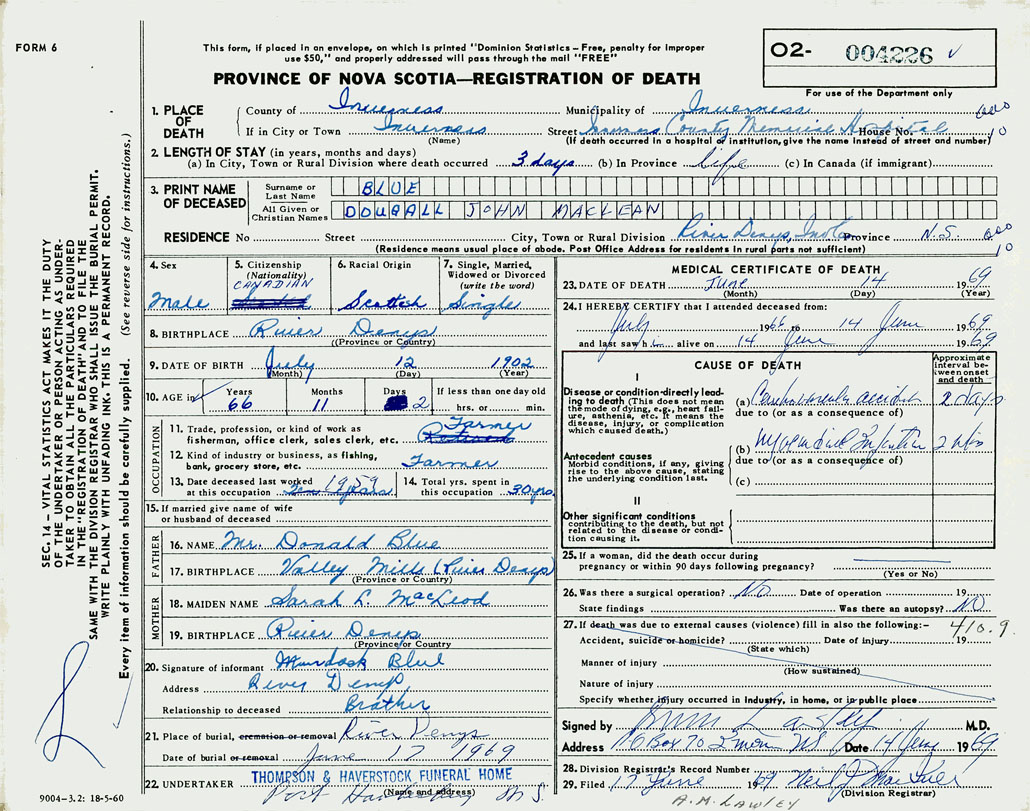 FORM 6
This form, if placed in an envelope, on which is printed "Dominion Statistics – Free, penalty for improper
use $50," and properly addressed will pass through the mail "FREE"
PROVINCE OF NOVA SCOTIA—REGISTRATION OF DEATH
O2- 004226
For use of the Department only
1. PLACE OF DEATH
County of Inverness Municipality of Inverness
If in City or Town Inverness Street County Memorial Hospital House No. 10
(Name) (If death occurred in a hospital or institution, give name instead of street and number)
2. LENGTH OF STAY (in years, months and days)
(a) In City, Town or Rural Division where death occurred 3 days (b) In Province Life (c) In Canada (if immigrant)
3. PRINT NAME OF DECEASED
Surname or Last Name BLUE
All Given or Christian Names DOUGALL JOHN MACLEAN
RESIDENCE No Street City, Town or Rural Division River Denys, Inv. Co. Province N.S.
(Residence means usual place of abode. Post Office Address for residents in rural parts not sufficient) 10
4. Sex Male
5. Citizenship (Nationality) CANADIAN
6. Racial Origin Scottish
7. Single, Married, Widowed or Divorced (write the word) Single
8. BIRTHPLACE River Denys
(Province or Country)
9. DATE OF BIRTH July 12 1902
(Month) (Day) (Year)
10. AGE in Years 66 Months 11 Days 2 If less than one day old hrs. or min.
OCCUPATION
11. Trade, profession, or kind of work as fisherman, office clerk, sales clerk, etc. Farmer
12. Kind of industry or business, as fishing, bank, grocery store, etc. Farmer
13. Date deceased last worked at this occupation 1959
14. Total yrs. spent in this occupation 30 yrs.
15. If married give name of wife or husband of deceased
FATHER
16. NAME Mr. Donald Blue
17. BIRTHPLACE Valley Mills (River Denys)
(Province or Country)
MOTHER
18. MAIDEN NAME Sarah L. MacLeod
19. BIRTHPLACE River Denys
(Province or Country)
20. Signature of informant Murdock Blue
Address River Denys
Relationship to deceased Brother
21. Place of burial, cremation or removal River Denys
Date of burial or removal June 17 1969
22. UNDERTAKER THOMPSON & HAVERSTOCK FUNERAL HOME
(Name and address) Port Hawkesbury N.S.
9004–3.2: 18-5-60
MEDICAL CERTIFICATE OF DEATH
23. DATE OF DEATH June 14 1969
(Month) (Day)
24. I HEREBY CERTIFY that I attended deceased from:
July 1966 to 14 June 1969
and last saw h alive on 14 June 1969
CAUSE OF DEATH
Approximate interval between onset and death
I
Disease or condition directly leading to death (This does not mean the mode of dying, e.g., heart failure, asthenia, etc. It means the disease, injury, or complication which caused death.)
(a) Cerebrovascular accident 2 days
due to (or as a consequence of)
Antecedent causes
Morbid conditions, if any, giving rise to the above cause, stating the underlying condition last.
(b) Myocardial Infarction 2
due to (or as a consequence of)
(c)
II
Other significant conditions contributing to the death, but not related to the disease or condition causing it.
25. If a woman, did the death occur during pregnancy or within 90 days following pregnancy?
(Yes or No)
26. Was there a surgical operation? No Date of operation 19
State findings Was there an autopsy? No
27. If death was due to external causes (violence) fill in also the following:– 410.9
Accident, suicide or homicide? Date of injury 19
(State which)
Manner of injury
(How sustained)
Nature of injury
Specify whether injury occurred in Industry, in home, or in public place
Signed by M.D.
Address Box 70 NS Date 14 June 1969
28. Division Registrar's Record Number
29. Filed 17 June 1969
(Division Registrar)
A.M. LAWLEY
SEC. 14 – VITAL STATISTICS ACT MAKES IT THE DUTY
OF THE UNDERTAKER OR PERSON ACTING AS UNDER-
TAKER TO OBTAIN ALL THE PARTICULARS REQUIRED
IN THE "REGISTRATION OF DEATH" AND TO FILE THE
SAME WITH THE DIVISION REGISTRAR WHO SHALL ISSUE THE BURIAL PERMIT.
WRITE PLAINLY WITH UNFADING INK. THIS IS A PERMANENT RECORD.
Every item of information should be carefully supplied. (See reverse side for instructions.)